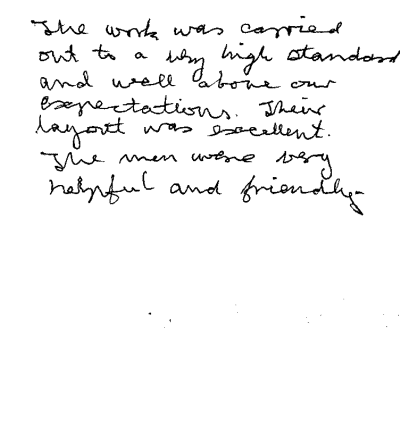 The work was carried
out to a very high standard
and well above our
expectations. Their
layout was excellent.
The men were very
helpful and friendly.